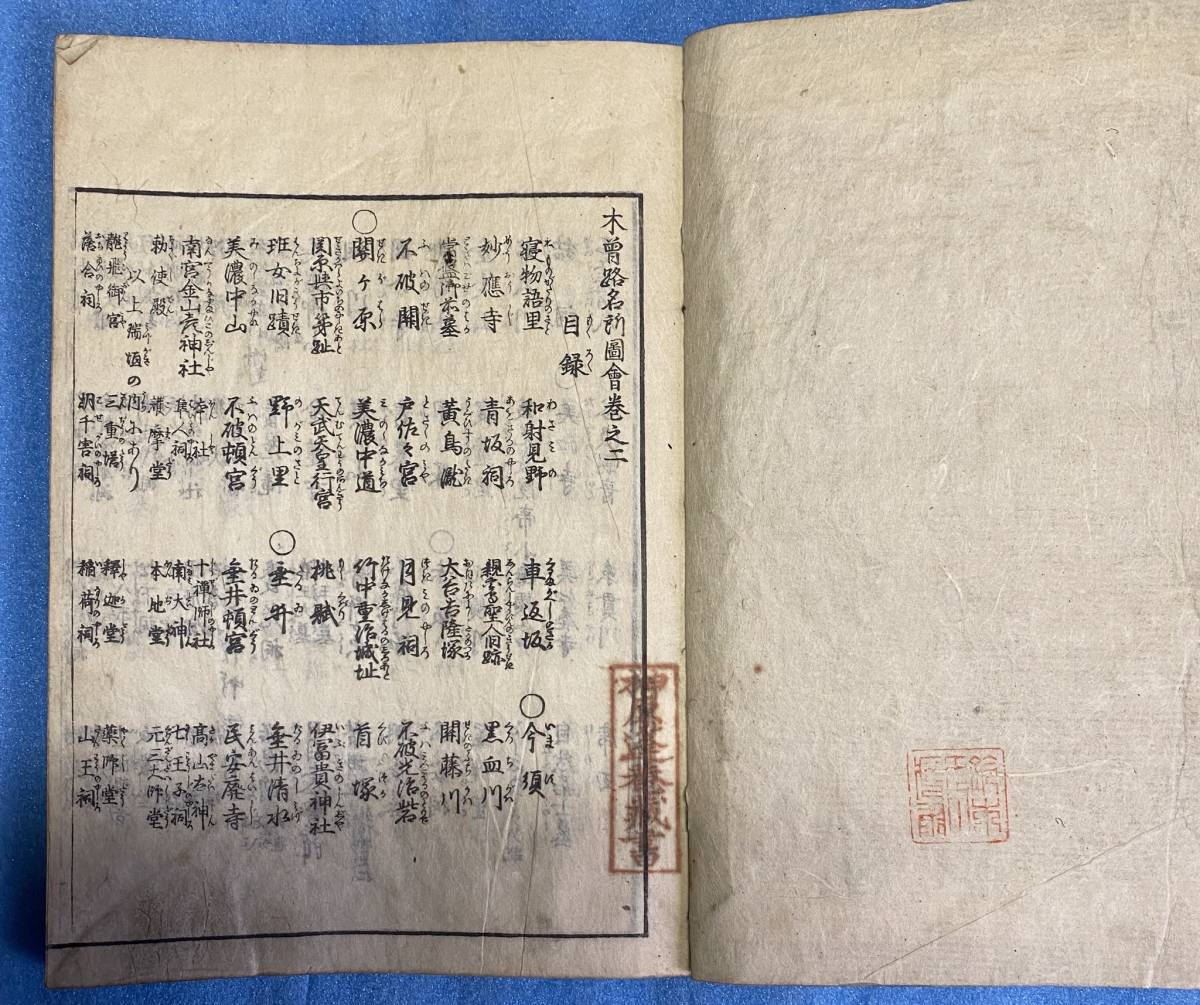 木曾路名所圖會巻之二
目録
寝物語里 和射見野 車返坂 〇今須
妙應寺 青坂祠 親鸞聖人旧跡 黒血川
常盤御前墓 黄鳥瀧 大谷吉隆塚 開藤川
不破關 戸佐々宮 月見祠 不破光治砦
〇関ヶ原 美濃中道 竹中重治城址 首塚
関原與市第趾 天武天皇行宮 桃賦 伊富貴神社
班女旧蹟 野上里 〇垂井 垂井清水
美濃中山 不破頓宮 垂井頓宮 民安廃寺
南宮金山彦神社 幸社 十禅師社 高山大神
隼人祠 南大神 七王子祠
勅使殿 護摩堂 本地堂 元三大師堂
以上瑞垣の内にあり
龍飛御宮 三重塔 釋迦堂 薬師堂
落合祠 稲荷祠 山王祠